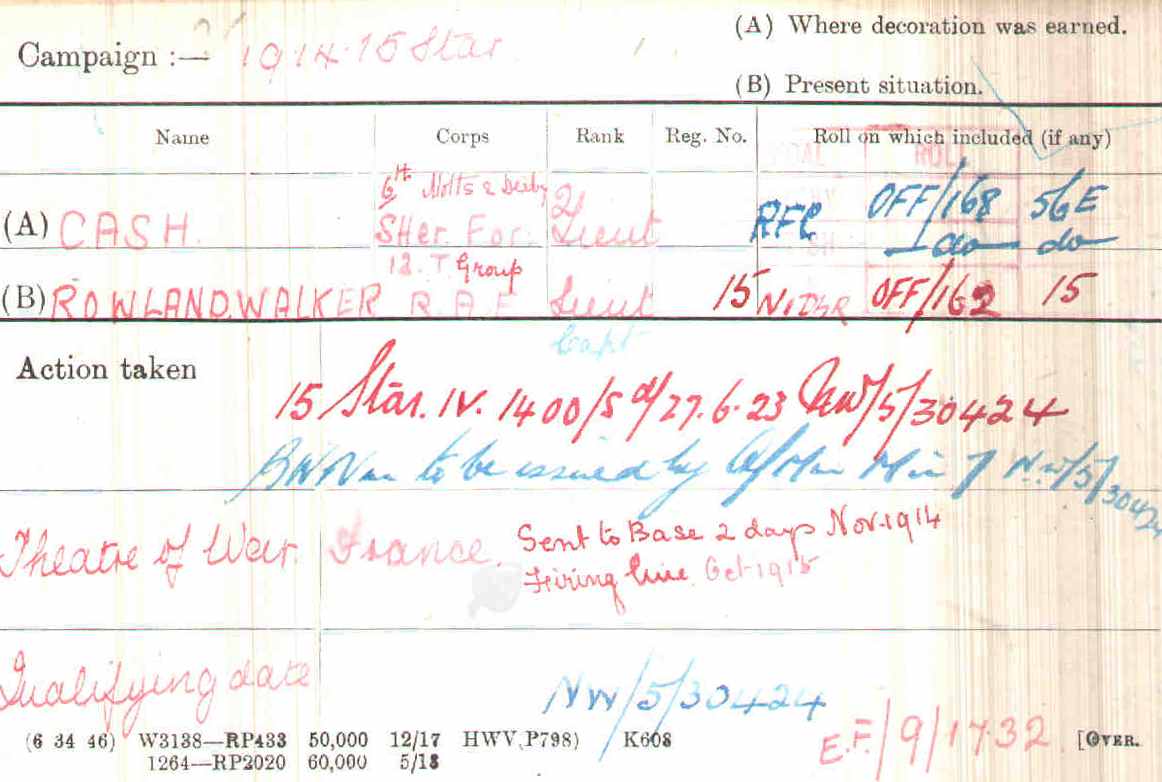 (A) Where decoration was earned.
Campaign :— 1914-15 Star
(B) Present situation.
Name Corps Rank Reg. No. Roll on which included (if any)
6th Notts & Derby 2/
(A) CASH. SHer. For. Lieut RFC OFF/168 56E
do do
12. T. Group
(B) ROWLAND.WALKER R.A.F Lieut 15 N&DR OFF/162 15
Capt
Action taken
15 Star. IV. 1400/5 d/27.6.23 NW/5/30424
BWV to be issued by Air Min NW/5/30424
Theatre of War. France. Sent to Base 2 days Nov. 1914
Firing line. Oct 1915
Qualifying date
NW/5/30424
E.F./9/1732
(6 34 46) W3138—RP433 50,000 12/17 HWV(P798) K608 [OVER.
1264—RP2020 60,000 5/18